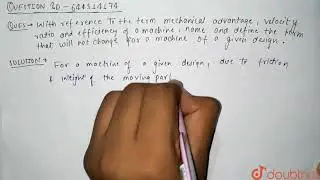 QUESTION ID - 644514174
QUES → With reference to the term mechanical advantage, velocity
ratio and efficiency of a machine, name and define the term
that will not change for a machine of a given design.
SOLUTION: For a machine of a given design, due to friction
& weight of the moving par
doubtnut